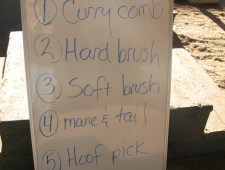 ① Curry comb
② Hard brush
③ Soft brush
④ mane & tail
⑤ Hoof pick